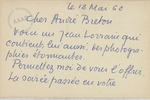 le 12 Mai 60
Cher André Breton
voici un Jean Lorrain qui
contient lui aussi des photogra-
phies étonnantes.
Permettez moi de vous l'offrir
La soirée passée en votre